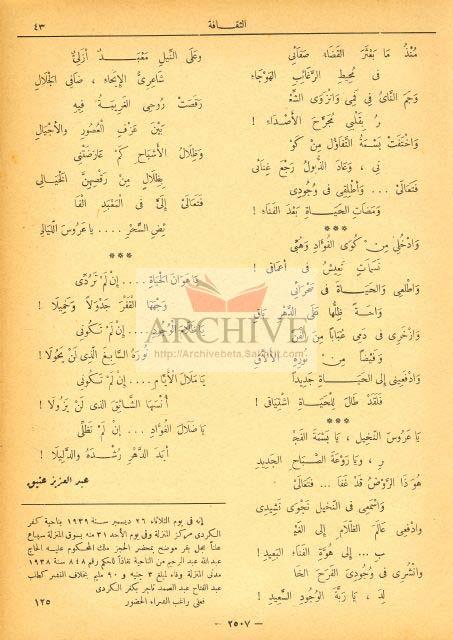 ٤٣
الثقافة
مُنْذُ مَا بَعْثَرَ القَضَاءُ صَفَائى
فى مُحيطِ الرَّغَائِبِ الهَوْجَاءِ
وَجَمَ النَّاىُ فى فَمِى وَانْزَوَى الشِّعْـ
ـرُ بِقَلْبِى مُجَرَّحَ الأَصْدَاءِ !
وَاخْتَفَتْ بَسْمَةُ التَّفَاؤُلِ مِنْ كَوْ
نِى ، وَعَادَ الذُّبُولُ رَجْعَ غِنَائى
فَتَعَالَىْ ... وَأَطْلِقِى فى وُجُودِى
وَمَضَاتِ الحَيَاةِ بَعْدَ الفَنَاءِ !
***
وَادْخُلِى مِنْ كُوَى الفُؤَادِ وَهُبِّى
نَسَمَاتٍ تَعِيشُ فى أعمَاقى !
وَاطْلَعِى وَالحَيَاةُ فى صَحْرَائى
وَاحَةً ظِلُّهَا عَلَى الدَّهْرِ بَاقى
وَازْخَرِى فى دَمِى عُبَابًا مِنَ
وَفَيْضًا مِنْ نُورِهِ
وَادْفَعِينى إلى الحَيَاةِ جَدِيداً
فَلَقَدْ طَالَ لِلْحَيَاةِ اشْتِيَاقى !
***
يَا عَرُوسَ النَّخِيلِ ، يَا بَسْمَةَ الفَجْـ
ـرِ ، وَيَا رَوْعَةَ الصَّبَاحِ الجَدِيدِ
هُوَ ذَا الرَّوْضُ قَدْ غَفَا ... فَتَعَالَىْ
وَاسْمَعِى فى النَّخِيلِ نَجْوَى نَشِيدِى
وادفعِى عَالَمَ الظَّلَامِ إلى الغَيْـ
ـبِ ... إلى هُوَّةِ الفَنَاءِ البَعِيدِ !
وَانْشُرِى فى وُجُودِىَ الفَرَحَ الخَا
لِدَ ، يَا رَبَّةَ الوُجُودِ السَّعِيدِ !
وَعَلَى النِّيلِ مَعْبَدٌ أزَلىٌّ
شَاعِرِىُّ الإِيحَاءِ ، ضَافى الجَلَالِ
رَقَصَتْ رُوحِىَ الغَرِيبَةُ فِيهِ
بَيْنَ عَزْفِ العُصُورِ والأجْيَالِ
وَظِلَالُ الأشْبَاحِ كَمْ عَارَضَتْنى
بِظِلَالٍ مِنْ رَقْصِهِنَّ الخَيَالى
فَتَعَالَىْ إلىَّ فى المَعْبَدِ الفَا
ئِضِ السِّحْرِ ... يا عَرُوسَ اللَّيَالى
***
يَا هَوَانَ الحَيَاةِ ... إنْ لَمْ تَرُدِّى
وَجْهَهَا القَفْرَ جَدْوَلاً وَخَمِيلَا !
يَا ظَلَامَ ... إنْ لَمْ تَكُونى
نُورَهُ السَّابِغَ الَّذِى لَنْ يَحُولَا !
يَا مَلَالَ الأيَّامِ ... إنْ لَمْ تَكُونى
أُنْسَهَا الشَّائِقَ الذى لَنْ يَزُولَا !
يَا ضَلَالَ الفُؤَادِ ... إنْ لَمْ تَظَلِّى
أبَدَ الدَّهْرِ رُشْدَهُ وَالدَّلِيلَا !
عبد العزيز عتيق
إنه فى يوم الثلاثاء ٢٦ ديسمبر سنة ١٩٣٩ بناحية كفر
الكردى مركز المنزلة وفى يوم الأحد ٣١ منه بسوق المنزلة سيباع
علناً عجل بقر موضح بمحضر الحجز ملك المحكوم عليه الحاج
عبد الله عبد الرحيم من الناحية نفاذاً للحكم رقم ٨٤٨ سنة ١٩٣٨
مدنى المنزلة وفاء لمبلغ ٣ جنيه و ٩٠ مليم بخلاف النشر كطلب
عبد الفتاح عبد الصمد تاجر بكفر الكردى
فعلى راغب الشراء الحضور
١٢٥
— ٢٥٠٧ —
ARCHIVE
http://Archivebeta.Sakhrit.com